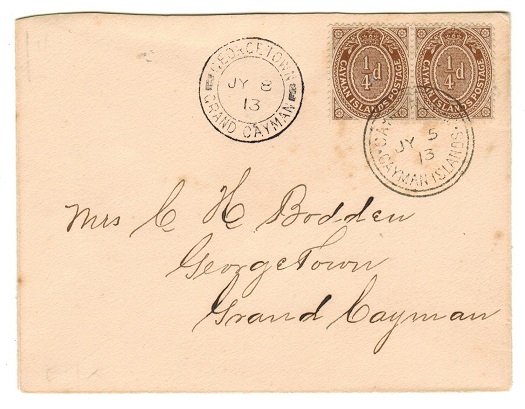 GEORGETOWN
JY 8
13
GRAND CAYMAN
CAYMAN ISLANDS POSTAGE
¼d
CAYMAN ISLANDS POSTAGE
¼d
JY 5
13
CAYMAN ISLANDS
Mrs C H Bodden
GeorgeTown
Grand Cayman